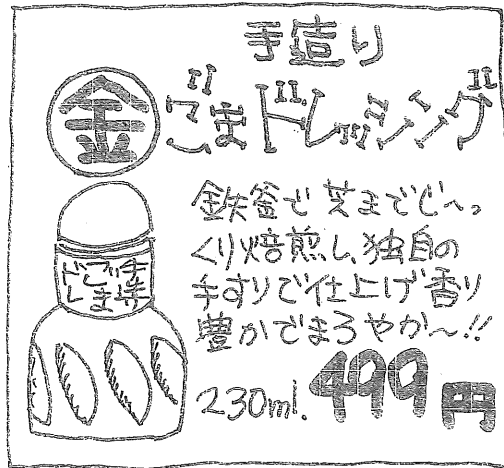 手造り
金ごまドレッシング
鉄釜で芯までじ〜っ
くり焙煎し、独自の
手すりで仕上げ香り
豊かでまろやか〜!!
230ml. 499円